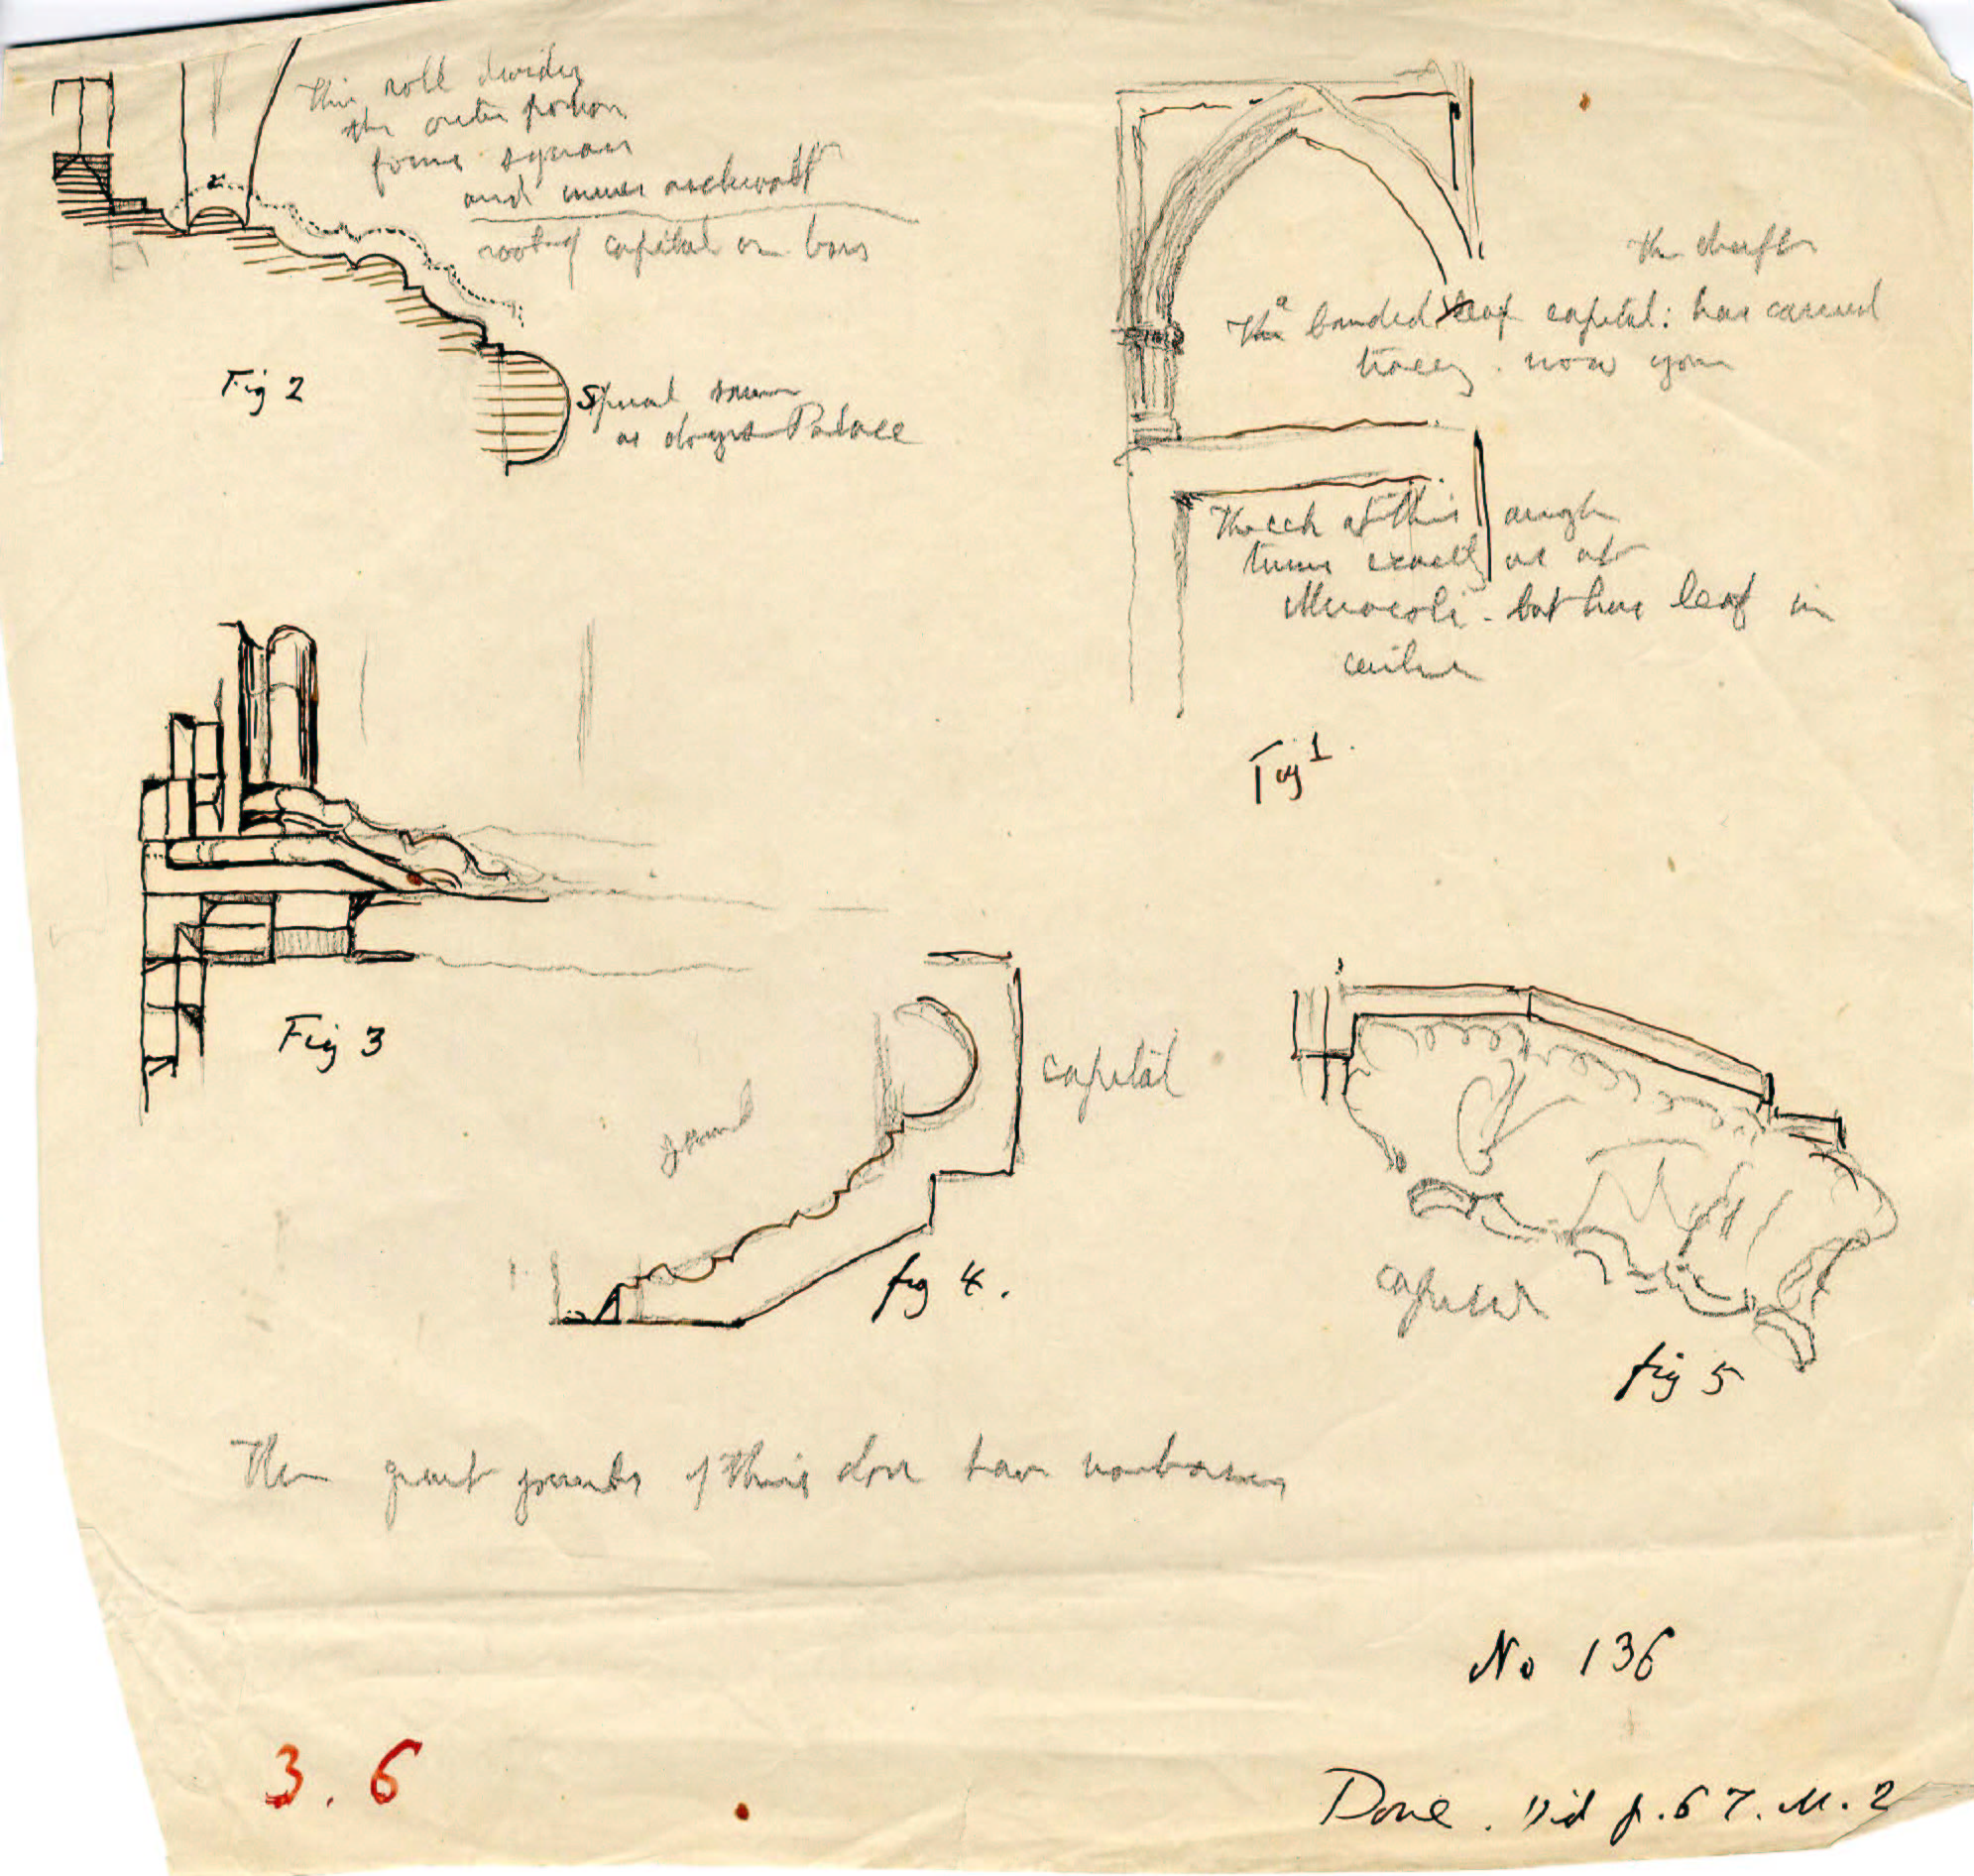 This roll divides
the outer portion
forms square
and inner archivolt
root of capital or base
Fig 2
Spiral same
as doges Palace
the shafts
a banded leaf capital: has carried
tracery. now gone
The    at this angle
turns exactly as at
Miracoli - but has leaf in
centre
Fig 1.
Fig 3
capital
jamb
fig 4.
capital
fig 5
The great jambs of this door have no bases
No 136
3.6
Done. Vid p. 67. M. 2